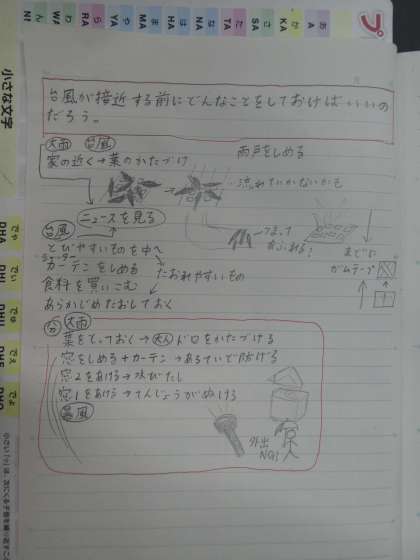 A あ KA か SA さ TA た NA な HA は MA ま YA や RA ら WA わ N ん
プ
小さな文字
台風が接近する前にどんなことをしておけばいいの
だろう。
大雨 台風
家の近く→葉のかたづけ
雨戸をしめる
流れていかないかも
ニュースを見る
台風
つまって
あふれる!
とびやすいものを中へ
シャッター
カーテンをしめる
たおれやすいもの
まどに
ガムテープ
食料を買いこむ
あらかじめたおしておく
大雨
葉をとっておく→大人ドロをかたづける
窓をしめる+カーテン→あるていど防げる
窓2をあける→
窓1をあける→てんじょうがぬける
暴風
外出
NG!!
DHA でゃ
DHI でぃ
DHU でゅ
DHE でぇ
DHO でょ